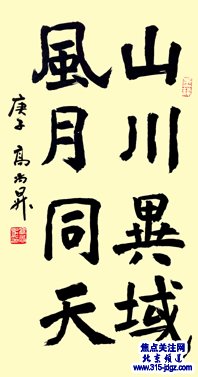 山川異域
風月同天
庚子 高尚昇
焦点关注网
北京频道
www.315-jdgz.com